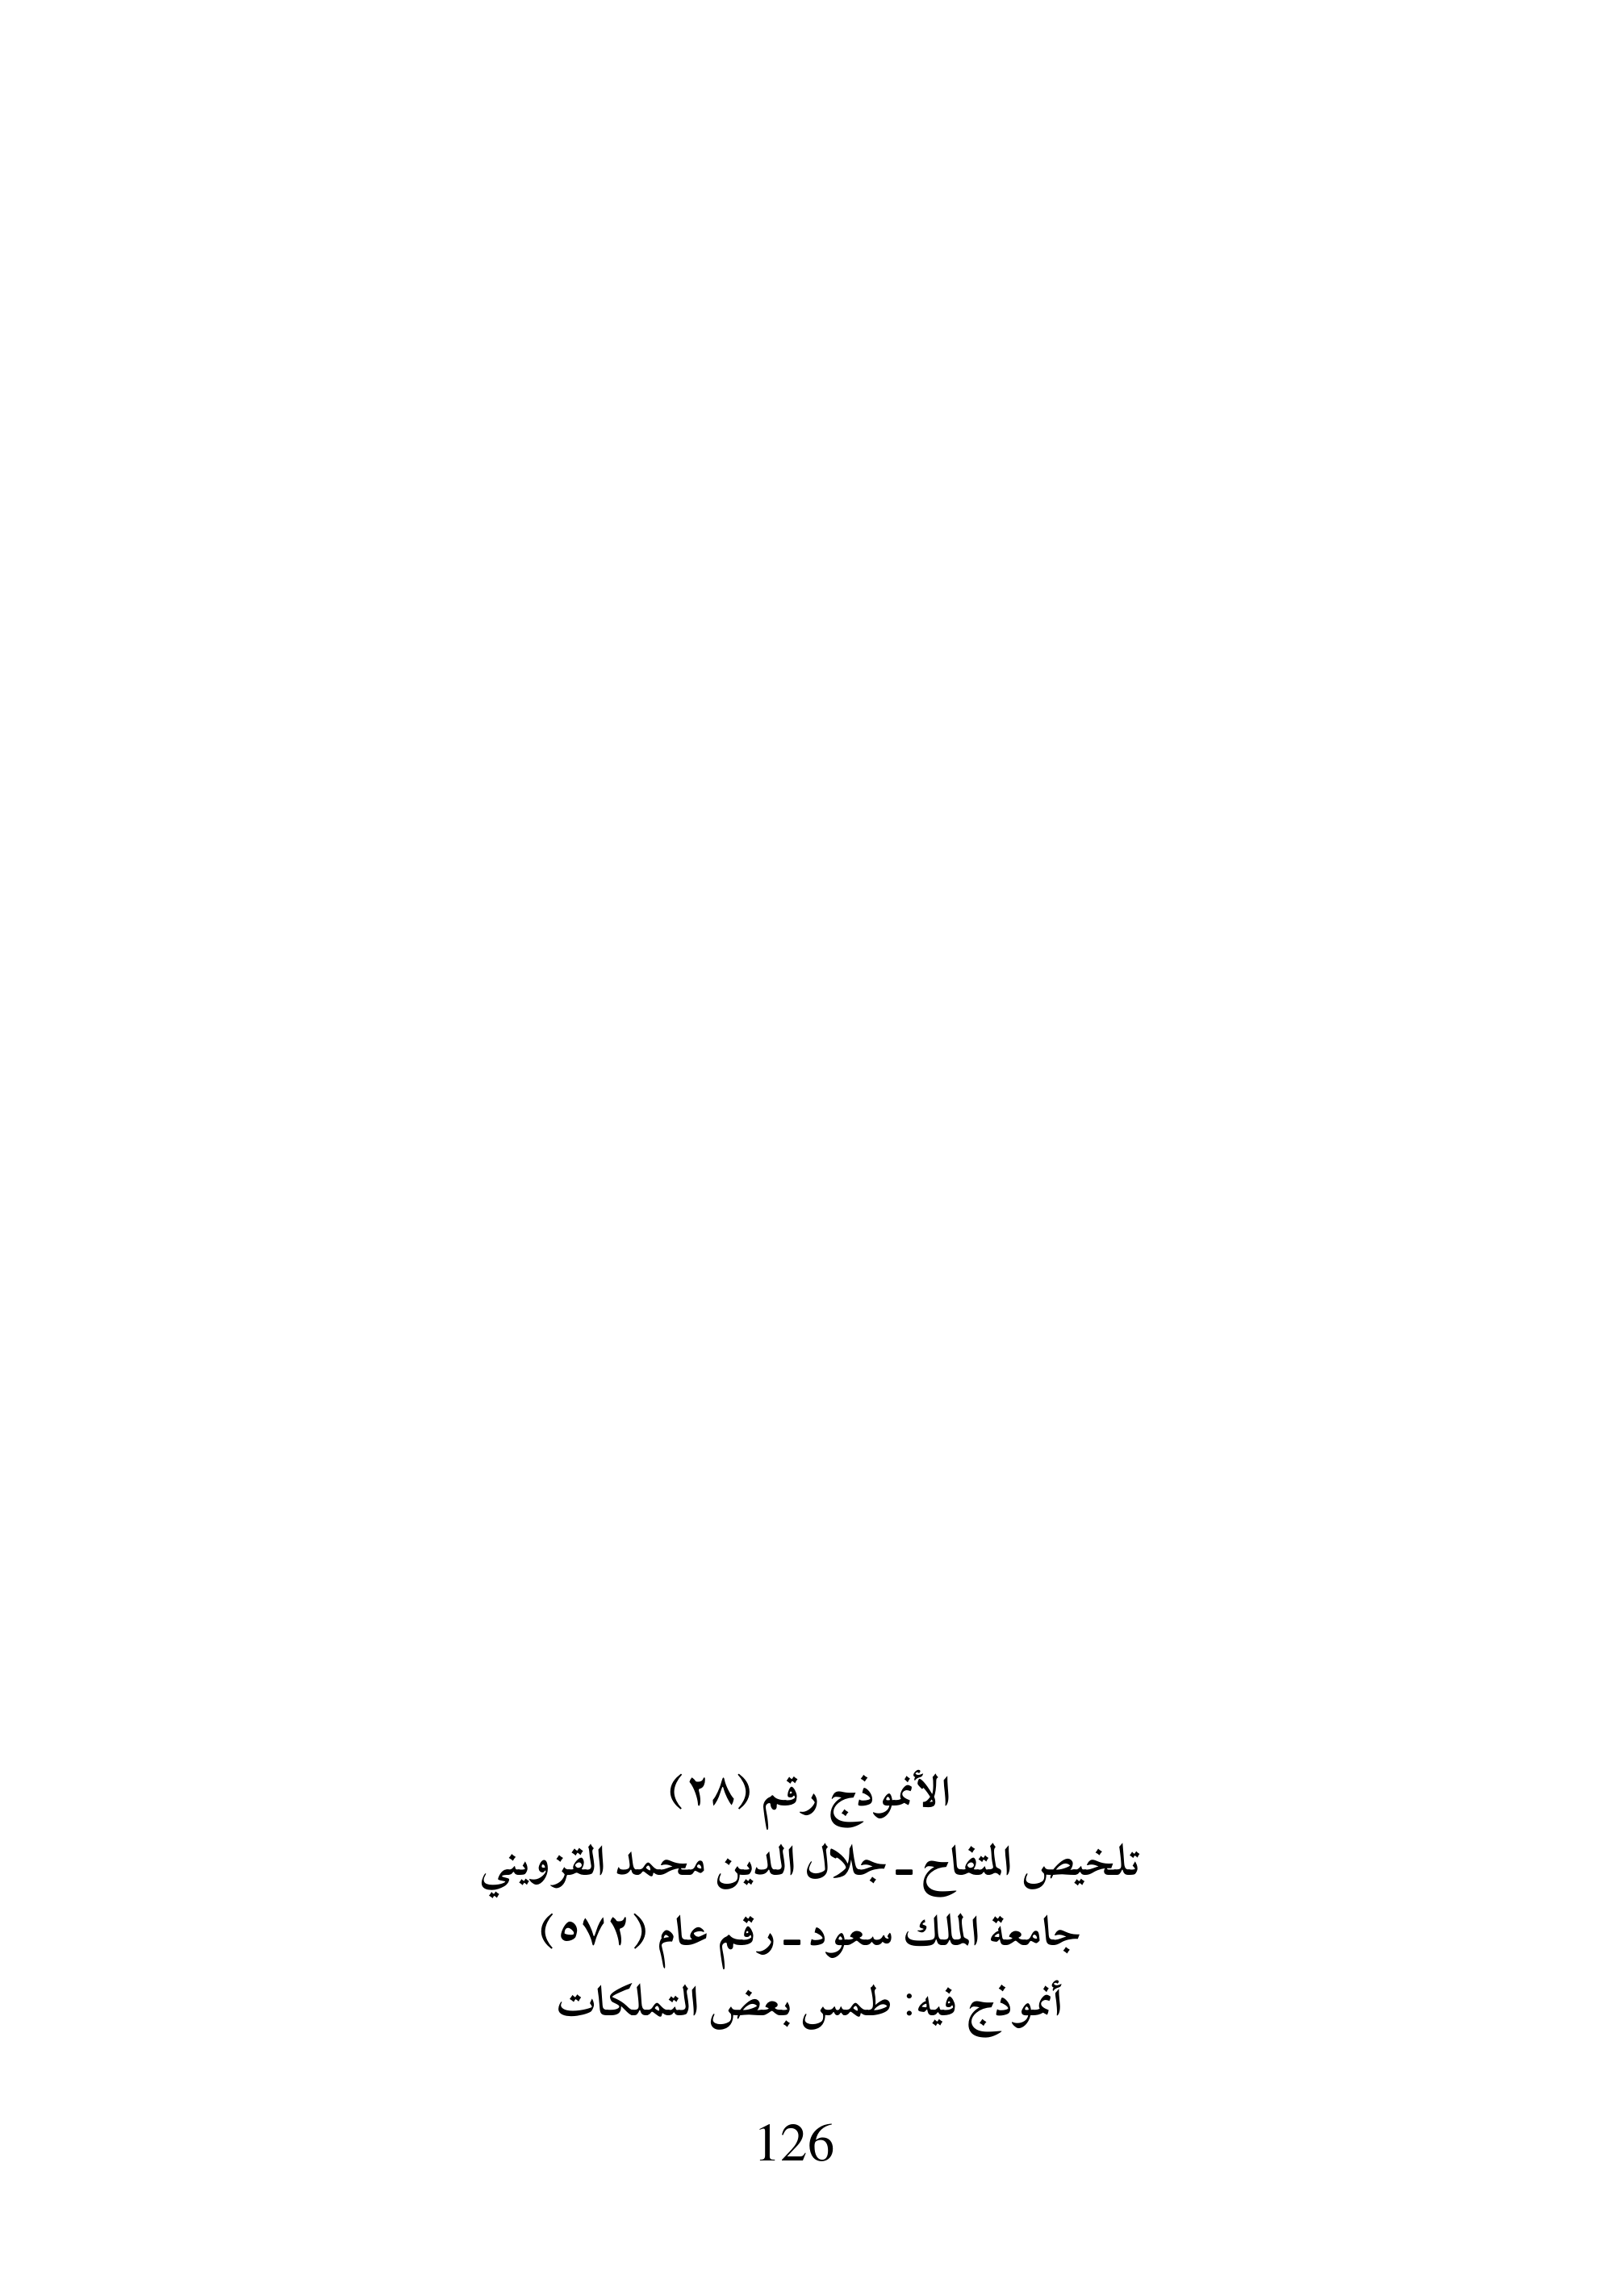 الأنموذج رقم (٢٨)
تلخيص المتفاح ـ جلال الدين محمد القزويني
جامعة الملك سعود ـ رقم عام (٥٧٢)
أنموذج فيه: طمس بعض التملكات
126